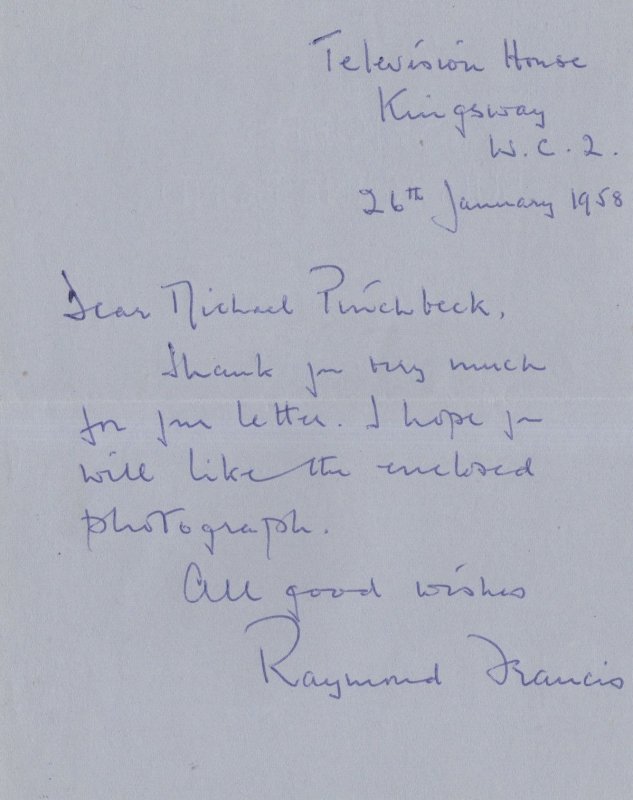 Television House
Kingsway
W.C.2.
26th January 1958
Dear Michael Pinchbeck,
Thank you very much
for your letter. I hope you
will like the enclosed
photograph.
All good wishes
Raymond Francis